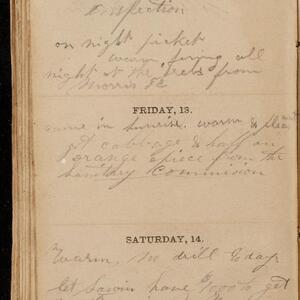 Inspection
on night picket
warm firing all
night at the rebs from
Morris Is
FRIDAY, 13.
came in sunrise. warm & pleasant
got cabbage & half an
orange apiece from the
Sanitary Commission
SATURDAY, 14.
Warm, No drill to day
let Sawin have $1000 to get